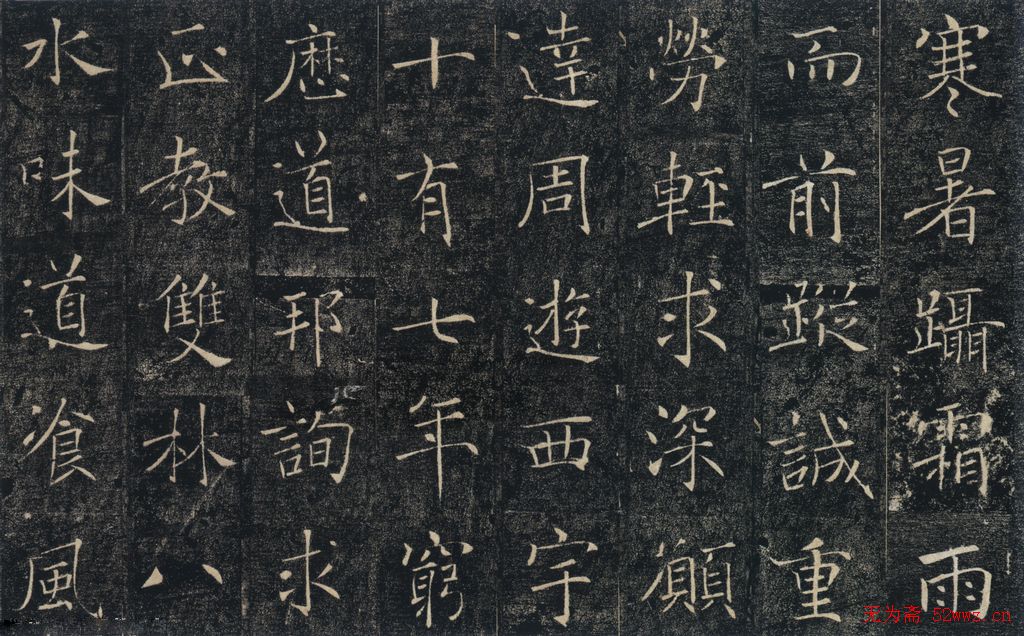 寒暑躡霜雨
而前蹤誠重
勞輕求深願
達周遊西宇
十有七年窮
歷道邦詢求
正教雙林八
水味道飡風
无为斋 52wwz.cn